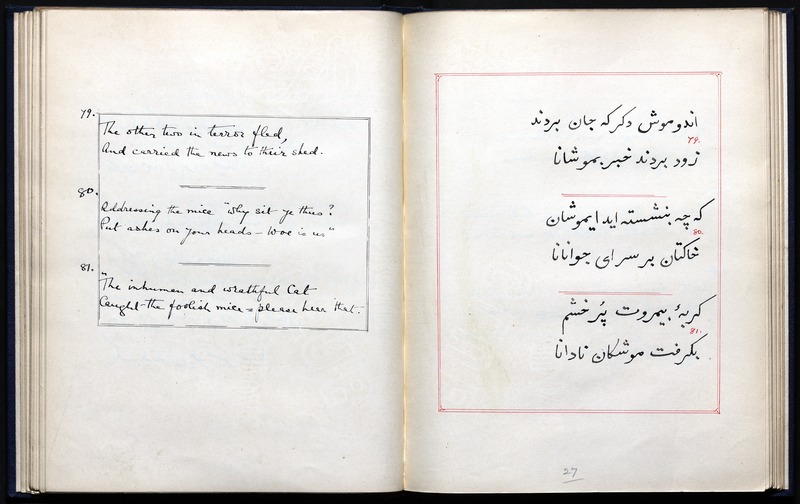 79.
The other two in terror fled,
And carried the news to their shed.
80.
Addressing the mice "Why sit ye thus?
Put ashes on your heads - Woe is us"
81.
"The inhuman and wrathful Cat
Caught the foolish mice - please hear that.
اندو موش دکر که جان بردند
79.
زود بردند خبر بموشانا
که چه بنشسته اید ایموشان
80.
خاکتان بر سر ای جوانانا
کربهٔ بیمروت پُر خشم
81.
بکرفت موشکان نادانا
27